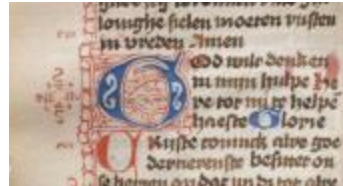 louighe sielen moeten rusten
in vreden Amen
God wilt denken
in mijn hulpe he
re tot mi te helpe
haeste Glorie
Criste coninck alre goe
dertierenste besitter on
se herten op dat wi di tot alre